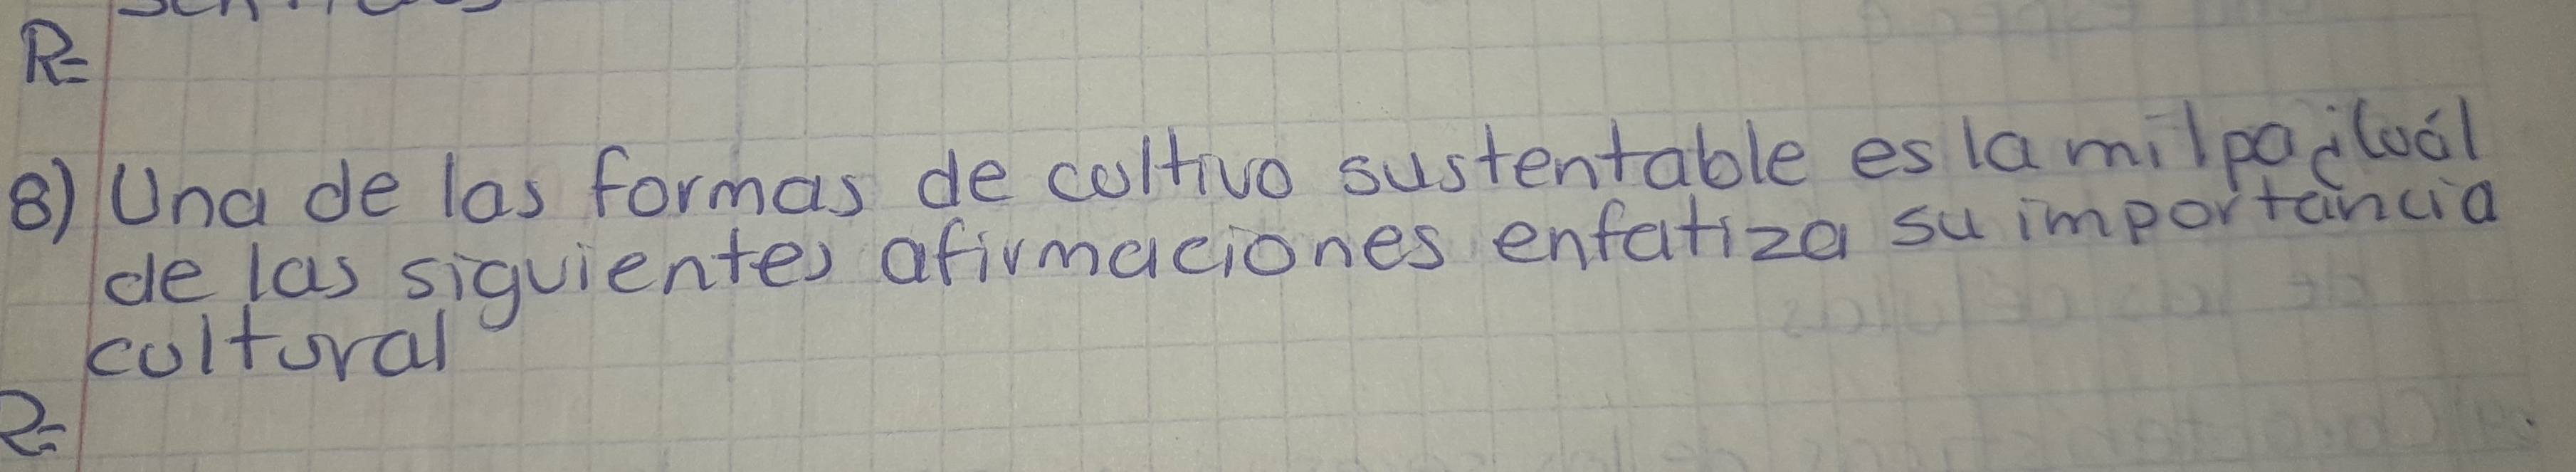 R=
8) Una de las formas de cultivo sustentable es la milpa ¿Cuál
de las siguientes afirmaciones enfatiza su importancia
cultural
R=